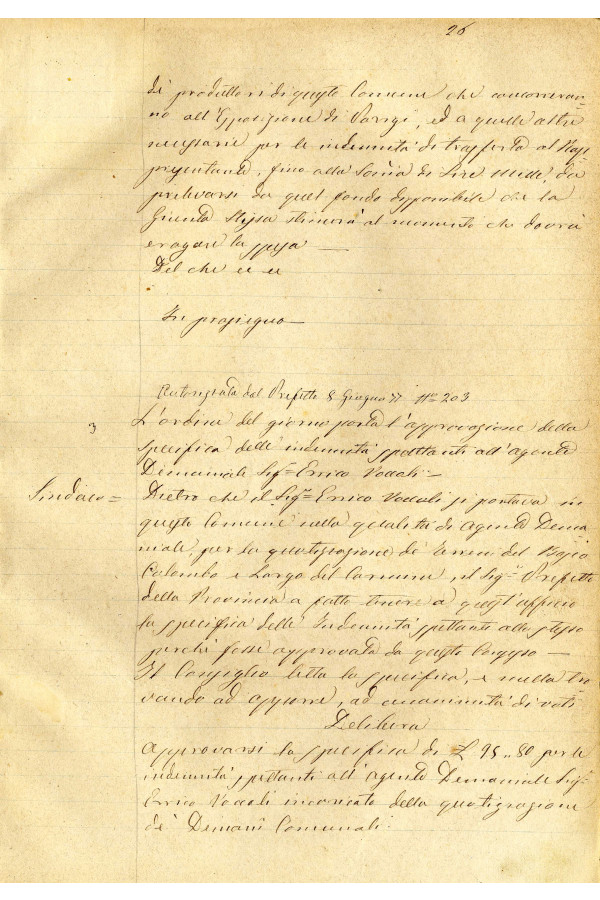 26
di produttori di questo Comune che concorreran=
no all'Esposizione di Parigi, ed a quelle altre
necessarie per le indennità di trasferta al Rap=
presentante, fino alla Somma di Lire Mille, da
prelevarsi da quel fondo disponibile che la
Giunta Stessa stimerà al momento che dovrà
erogare la spesa —
Del che
In prosieguo —
Autorizzata dal Prefetto 8 Giugno 77 N° 203
3
L'ordine del giorno porta l'approvazione della
specifica delle indennità spettanti all'agente
Demaniale Sig.r Errico Vaccali —
Sindaco =
Dietro che il Sig.r Errico Vaccali si portava in
questo Comune nella qualità di Agente Dema=
niale, per la quotizzazione di terreni del Bosco
Colombo e Largo del Carmine, il Sig.r Prefetto
della Provincia a fatto tenere a quest'officio
la specifica delle Indennità spettanti allo stesso
perchè fosse approvata da questo Consesso —
Il Consiglio letta la specifica, e nulla tro
vando ad opporre, ad unanimità di voti
Delibera
Approvarsi la specifica di L. 95,,80 per le
indennità spettanti all'Agente Demaniale Sig.r
Errico Vaccali incaricato della quotizzazione
de' Demanî Comunali.